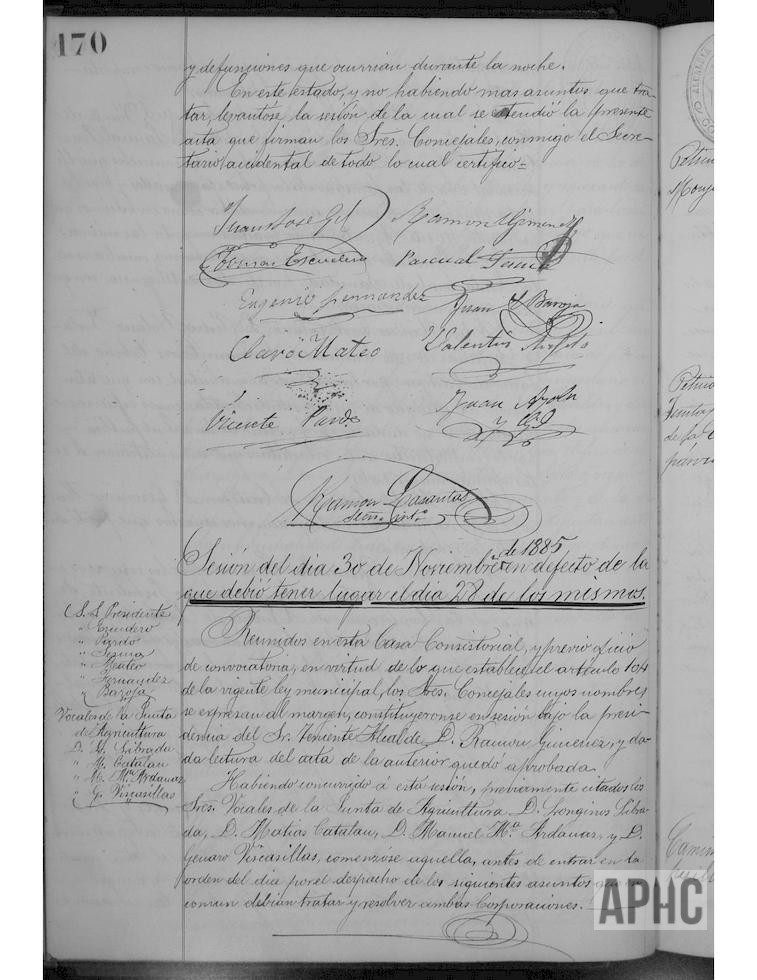 170
y defunciones que ocurrian durante la noche.
En este estado, y no habiendo mas asuntos que tra-
tar, levantóse la sesión de la cual se estendió la presente
acta que firman los Sres. Concejales, conmigo el Secre-
tario accidental de todo lo cual certifico=
Juan José Gil Ramon Gimenez
Tomás Escudero Pascual
Eugenio Fernandez Juan Baroja
Claro Mateo Valentin
Vicente Pardo Juan
Ramon Casantas
Sesión del dia 30 de Noviembre de 1885 en defecto de la
que debió tener lugar el dia 28 de los mismos.
S. S. Presidente
" Escudero
" Pardo
" Sesma
" Mateo
" Fernandez
" Baroja
Vocales de la Junta
de Agricultura
D. L. Librada
" M. Catalan
" M. Mª Ardanaz
" G. Viscasillas
Reunidos en esta Casa Consistorial, y previo oficio
de convocatoria, en virtud de lo que establece el articulo 104
de la vigente ley municipal, los Sres. Concejales cuyos nombres
se expresan al margen, constituyeronse en sesión bajo la presi-
dencia del Sr. Teniente Alcalde D. Ramon Gimenez, y da-
da lectura del acta de la anterior quedó aprobada.
Habiendo concurrido á esta sesión, previamente citados los
Sres. Vocales de la Junta de Agricultura D. Longinos Libra-
da, D. Matias Catalan, D. Manuel Mª Ardanaz, y D.
Genaro Viscasillas, comenzóse aquella, antes de entrar en la
orden del dia por el despacho de los siguientes asuntos que en
comun debian tratar y resolver ambas Corporaciones.
APHC